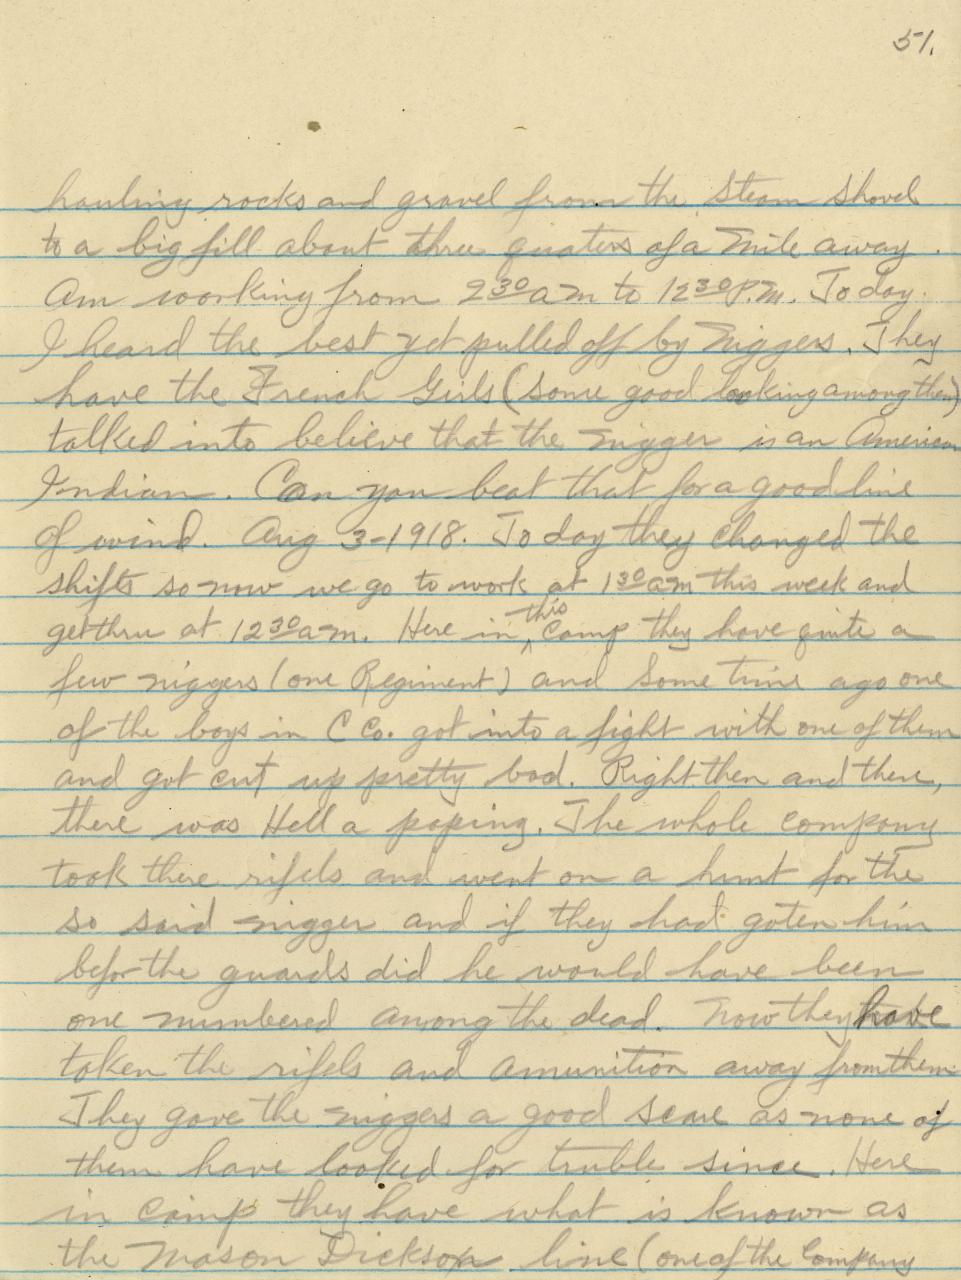 51.
hauling rocks and gravel from the Steam Shovel
to a big fill about three quaters of a Mile away.
Am working from 930 am to 1230 P.M. To day.
I heard the best yet pulled off by Niggers. They
have the French Girls (some good looking among them)
talked into believe that the nigger is an American
Indian. Can you beat that for a good line
of wind. Aug 3-1918. To day they changed the
shifts so now we go to work at 130 am this week and
get thru at 1230 a-m. Here in this Camp they have quite a
few niggers (one Regiment) and Some time ago one
of the boys in C Co. got into a fight with one of them
and got cut up pretty bad. Right then and there,
there was Hell a poping. The whole company
took there rifels and went on a hunt for the
so said nigger and if they had goten him
befor the guards did he would have been
one numbered among the dead. Now they have
taken the rifels and amunition away from them
They gave the niggers a good scare as none of
them have looked for truble since. Here
in camp they have what is known as
the Mason Dickson line (one of the Company